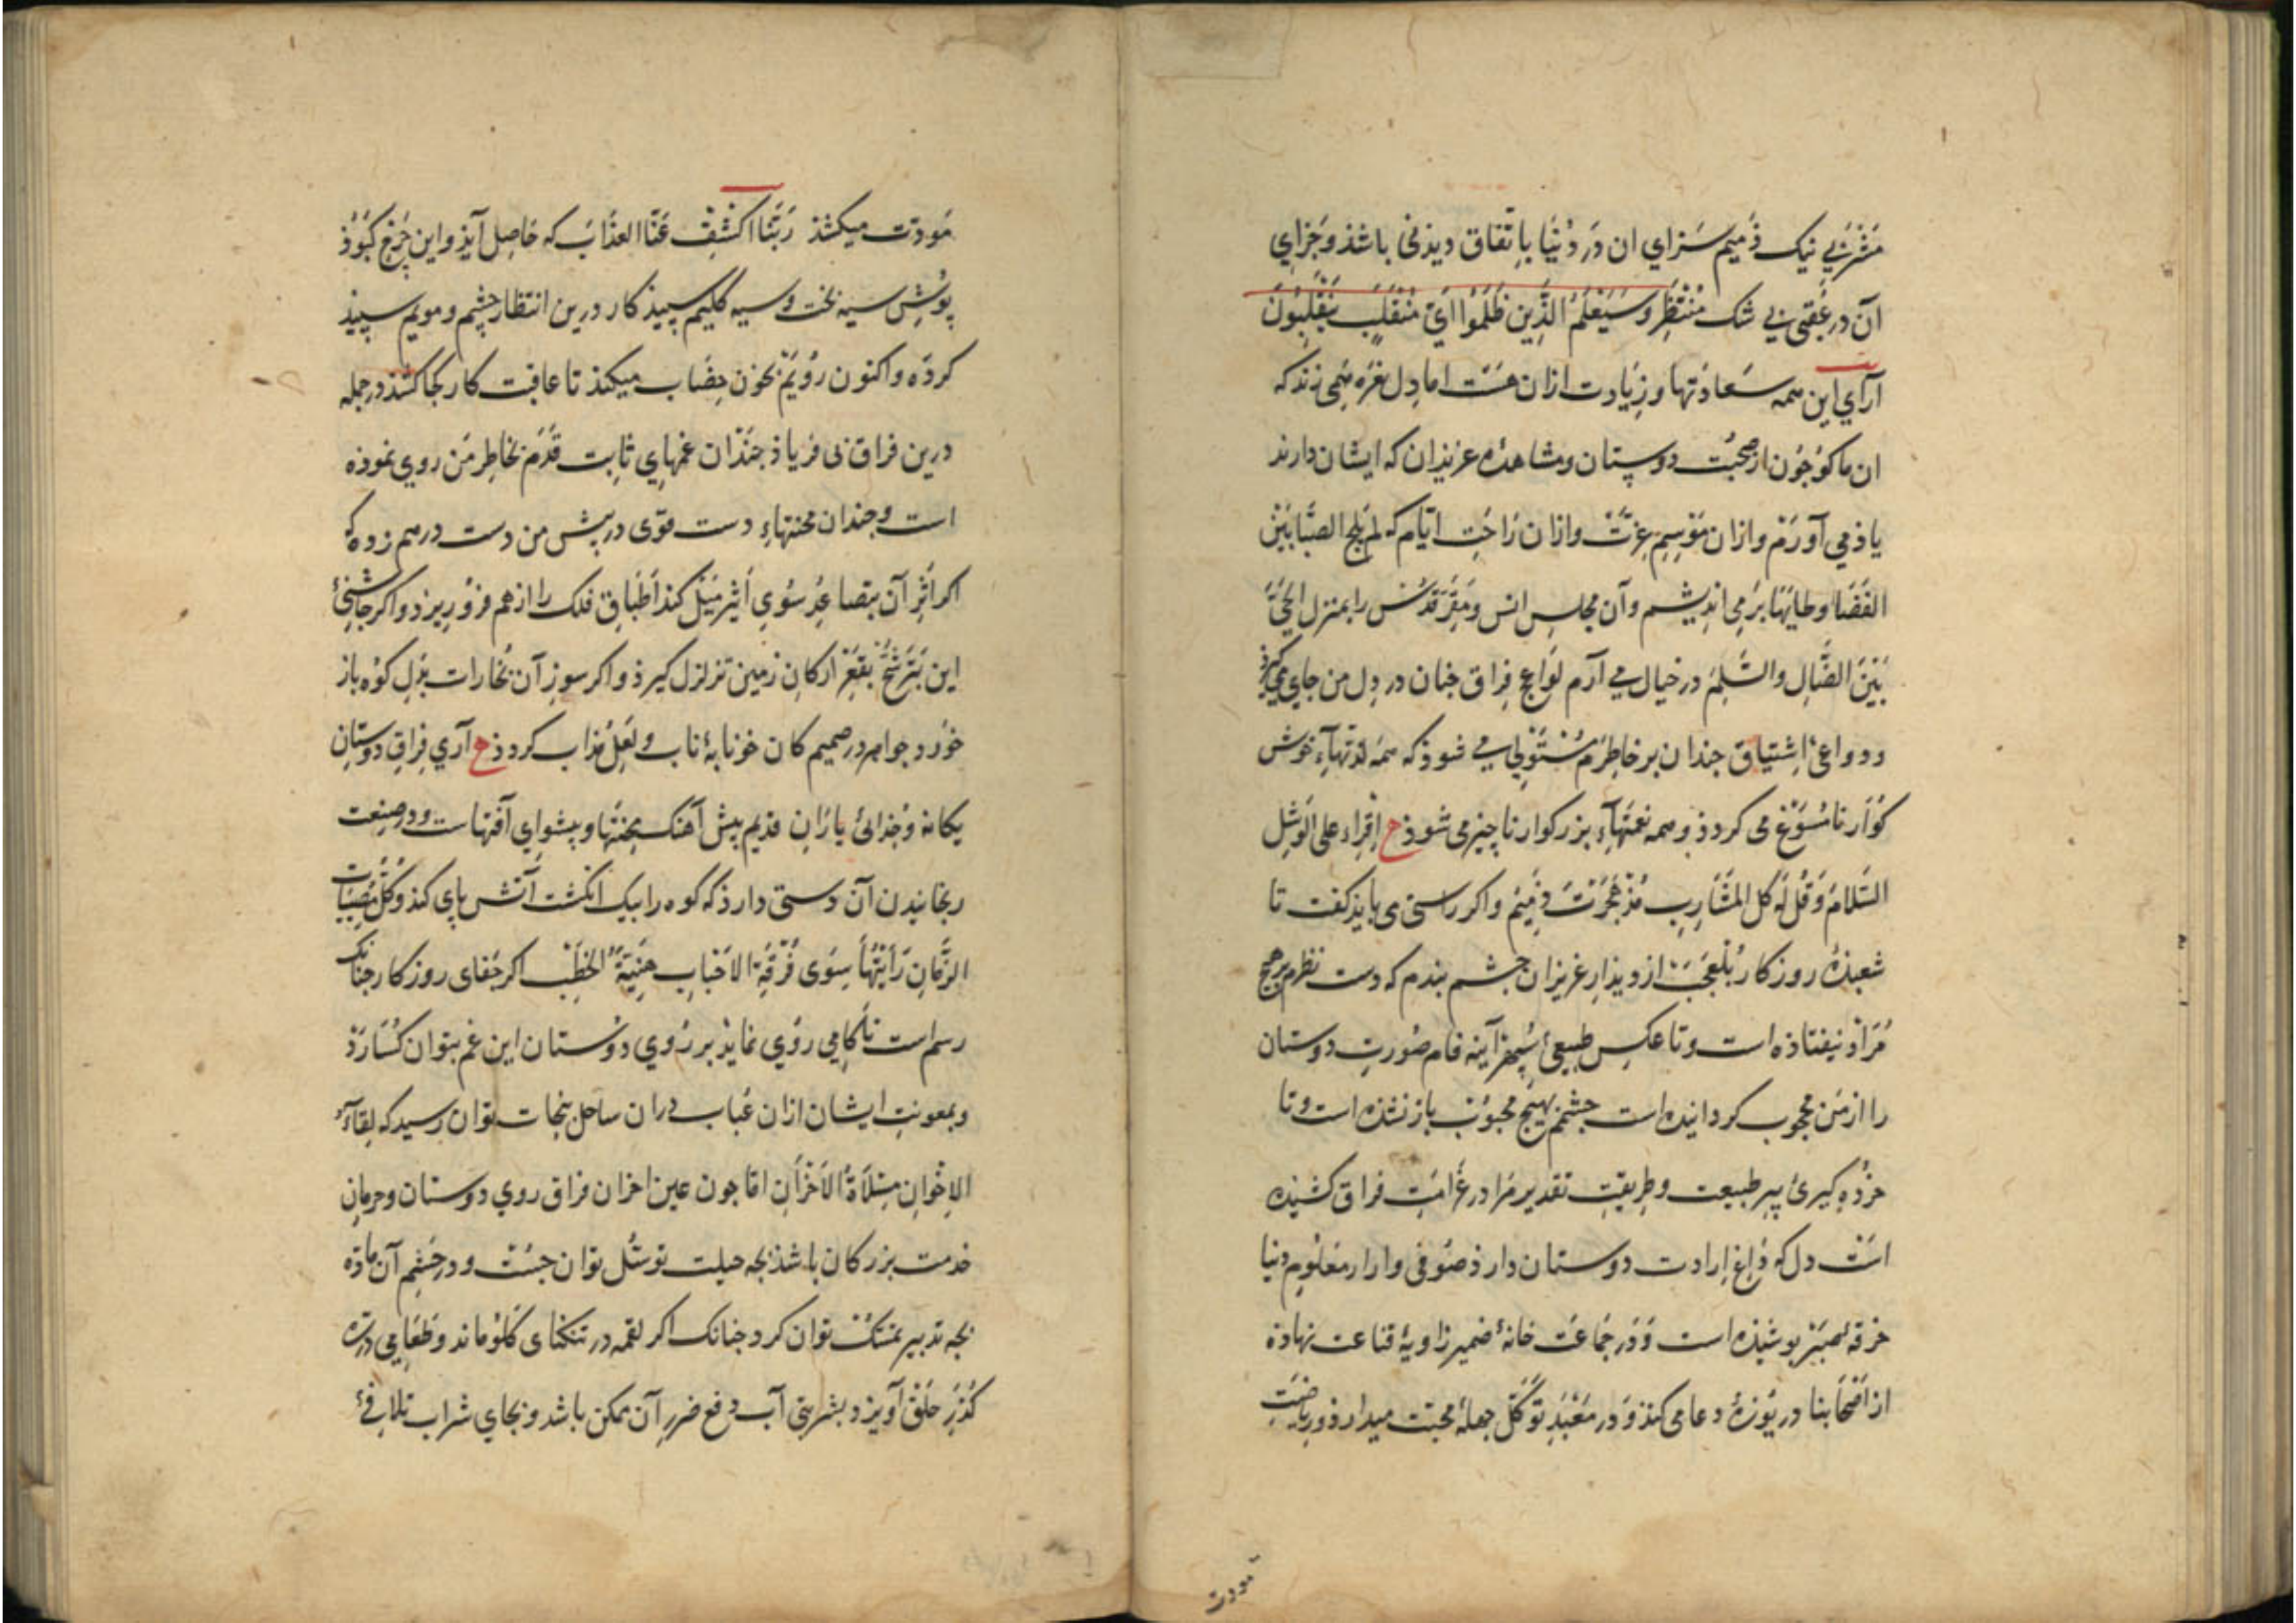 مَشْرَبي نیک ذَمیم سَزاي ان دَر دُنْیَا بِاتّفاق دیدنی باشذ وجَزاي
آن در عُقبی بی شک مُنْتَظِرْ وسَیَعْلَمُ الَّذِینَ ظَلَمُوا اَیَّ مُنْقَلَبٍ یَنْقَلِبُونَ
آرآي این همه سَعادَتها وزِیَادت ازان هَسْت اما دِل نعره می زند که
ان ما کو جُون از صحبُت دوستان ومشاهدهٔ عزیزان که ایشان دارند
یاذ می آورَم وازان مَوْسِمِ عِزّتْ وازان رَاحَتِ ایّام که لم یلج الصّبا بَیْنَ
الفَضا وطا یَهَا بَر می اندیشم وآن مجلِس انس ومَقَرّ قدْس را بمنزل الحَیّ
بَیْنَ الضَّالِ والسَّلِمَ در خیال می آرَم لَوَاعِج فِراق جنان در دِل من جاي می کیرذ
ودواعیٔ اِشتیاق جندان بر خاطِرَم مُسْتَوْلي می شوذ که همَه لذّتهآءِ خوش
کَوَار نا مُسَوَّغ می کردذ وهمه نعمَتهآءِ بزرکوار ناچیز می شوذ ع اِقراء علی الوَشِل
السَّلامَ وَقُل لَهُ کل المَشَارِبِ مُذْ هُجِرْتَ ذَمِیْم واکر راستی می بایذ کفت تا
شعبذهٔ روزکار بُلْعَجَبْ از دیذارِ عزیزان جشم بندم که دست نظرم بر هیج
مُرَاذ نیفتاذه است وتا عکسِ طبیعیٔ سِپِهرِ آینه فام صُورتِ دوستان
را از من محجوب کردانیده است جشمَم بهیْج محبوْب باز نشذه است وتا
خرْده کیریٔ پیر طبیعت وطرِیقتِ تقدیر مرا در غَرامَتِ فراق کشیده
استْ دل که دَاغ اِرادت دوستان دارذ صوُفی وار از مَعْلوُمِ دنیا
خرقهٔ صَبَرْ بوشیذه است وَدَر جمَاعَت خانهٔ ضمیر زاویهٔ قناعت نهاده
از اصْحَابنا در یوزهٔ دعا می کنذ وَ در مَعْبَدِ توَکّل جهلهٔ محبّت میدارذ وریاضَتِ
مودت
مَودّت میکشذ رَبَّنَا اکْشِفْ عَنَّا العذَابَ که حَاصِل آیذ واین چَرْخ کَبُوْذ
پوُشِ سیه بخت وسیه کلیم سپیذ کار درین انتظار جشم ومویم سپیذ
کردَه واکنون روُیَمْ بخون خِضَاب میکنذ تا عاقبت کار بجا کشذ در جمله
درین فراق نی فریاذ جنْدان غمهاي ثابت قَدَم بخاطِر من روي نموذه
است وجندان محنتهاءِ دست قوی در پیش من دست درهم زده که
اکر اثرِ آن بتصاعُدِ سُويِ اَثیر مَیْل کند اَطبَاقِ فلک را از هم فرو رِیزذ واکر جاشنیٔ
این بتَرَشّحْ بقعَرْ ارکانِ زمین تزلزل کیرذ واکر سوزِ آن بُخارات بدِلِ کوُه باز
خوُرد جواهر در صمیم کان خونابهٔ ناب ولَعِلْ مُذاب کردذ ع آري فِراقِ دوستانِ
یکانه وجُدائیٔ یارَانِ قدیم پیش آهنک محِنَتها وپیشواي آفتهاست ودر صنعت
رنجانیدن آن دستی دارذ که کوه را بیک انکشت آتش پاي کند وَکُلُّ مُصِیْبَاتِ
الزَّمَانِ رَأَیْتُهَا سِوَی فُرْقَةِ الاَحْبابِ هَیِّنَةُ الخَطْبِ اکر جَفای روزکار جنانک
رسم است ناکَامِي روُي نمایذ بر رُوي دوُستان این غم بتوان کُسَارَدْ
وبمعونتِ ایشان ازان غباب دران ساحل نجات توان رسید که لِقآءُ
الاخْوانِ مِسْلاَةُ الاَحْزَانِ امّا جون عین احزان فراق روي دوستان وحِرمانِ
خدمت بزرکان باشذ بجه حیلت توسُّل توان جسْت و در حَسْمِ آن ماده
بجه تدبیر تمسّکْ توان کرد جنانک اکر لقمه در تنکنای کَلوُ ماند وطَعَامی در ره
کذَرِ حَلَقْ آویزد بشربتی آب دفعِ ضررِ آن ممکن باشد وبجاي شراب تلافیٔ